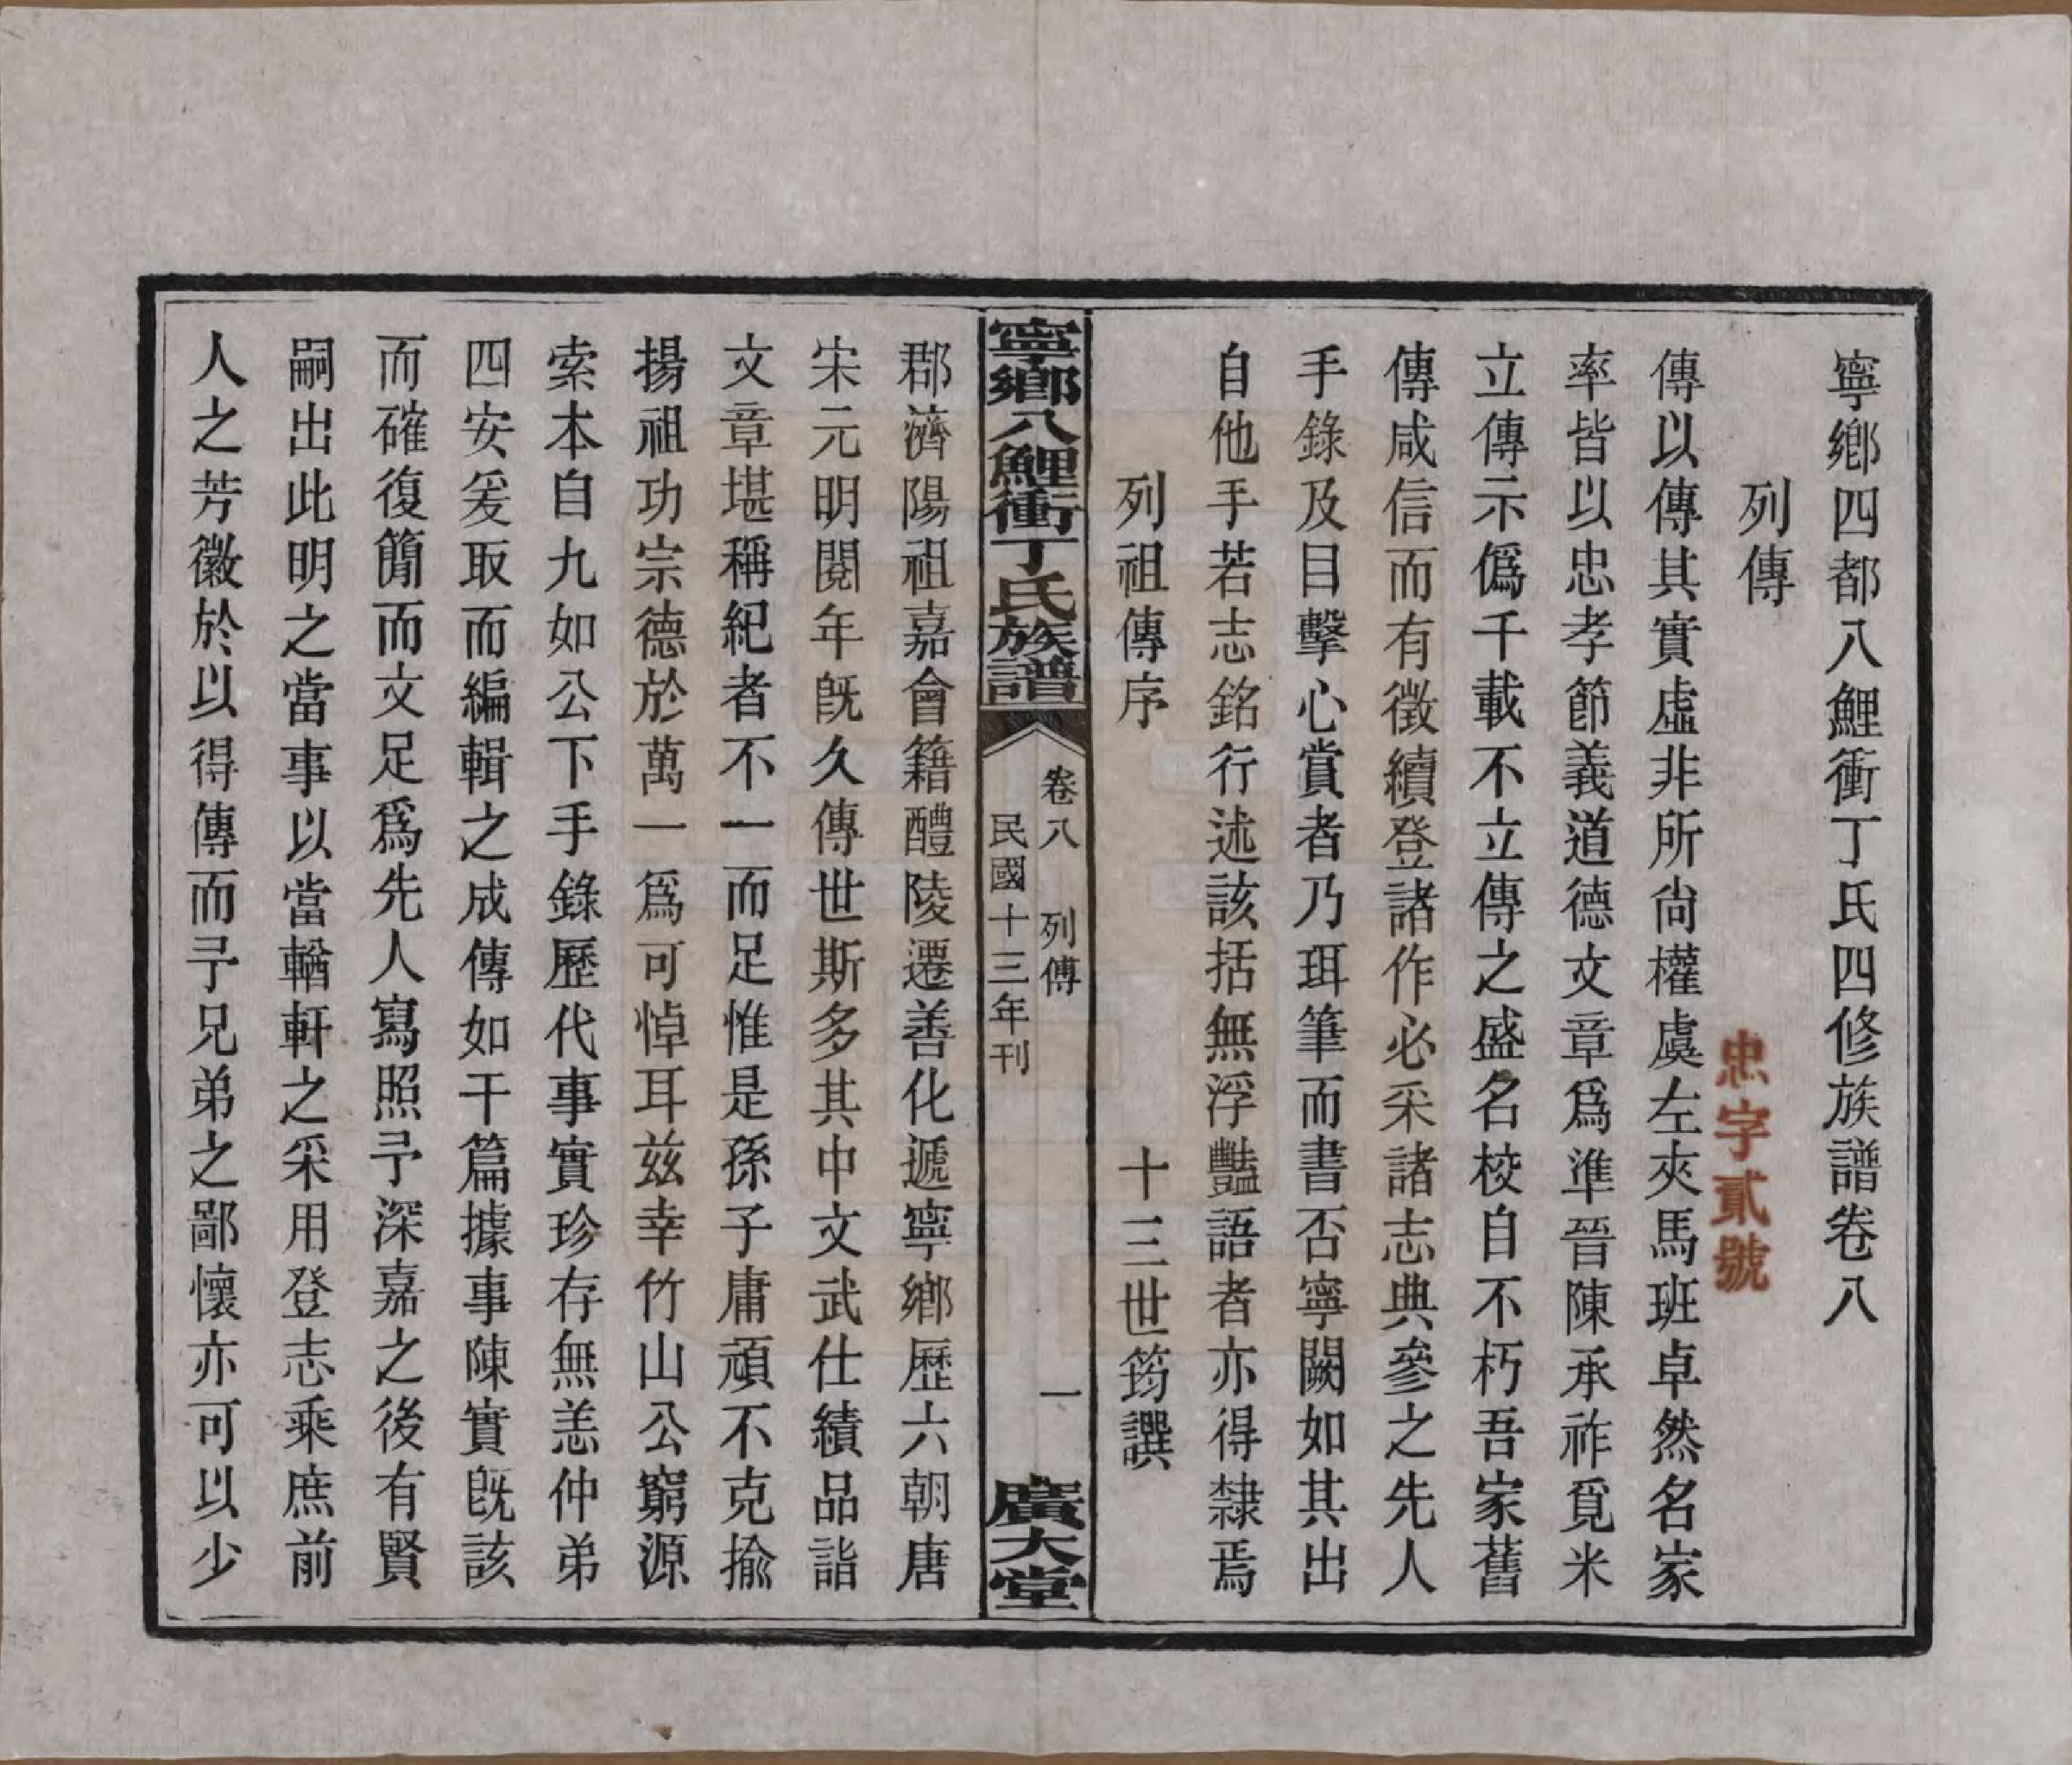 寧鄉四都八鯉衝丁氏四修族譜卷八
列傳
忠字貳號
傳以傳其實虛非所尙權虞左夾馬班卓然名家
率皆以忠孝節義道德文章爲準晉陳承祚覓米
立傳示僞千載不立傳之盛名校自不朽吾家舊
傳咸信而有徵續登諸作必采諸志典參之先人
手錄及目擊心賞者乃珥筆而書否寧闕如其出
自他手若志銘行述該括無浮豔語者亦得隸焉
列祖傳序
十三世筠譔
寧鄉八鯉衝丁氏族譜
卷八 列傳 一
民國十三年刊
廣大堂
郡濟陽祖嘉會籍醴陵遷善化遞寧鄉歷六朝唐
宋元明閱年旣久傳世斯多其中文武仕績品詣
文章堪稱紀者不一而足惟是孫子庸頑不克揄
揚祖功宗德於萬一爲可悼耳茲幸竹山公窮源
索本自九如公下手錄歷代事實珍存無恙仲弟
四安爰取而編輯之成傳如干篇據事陳實旣該
而確復簡而文足爲先人寫照予深嘉之後有賢
嗣出此明之當事以當輶軒之采用登志乘庶前
人之芳徽於以得傳而予兄弟之鄙懷亦可以少